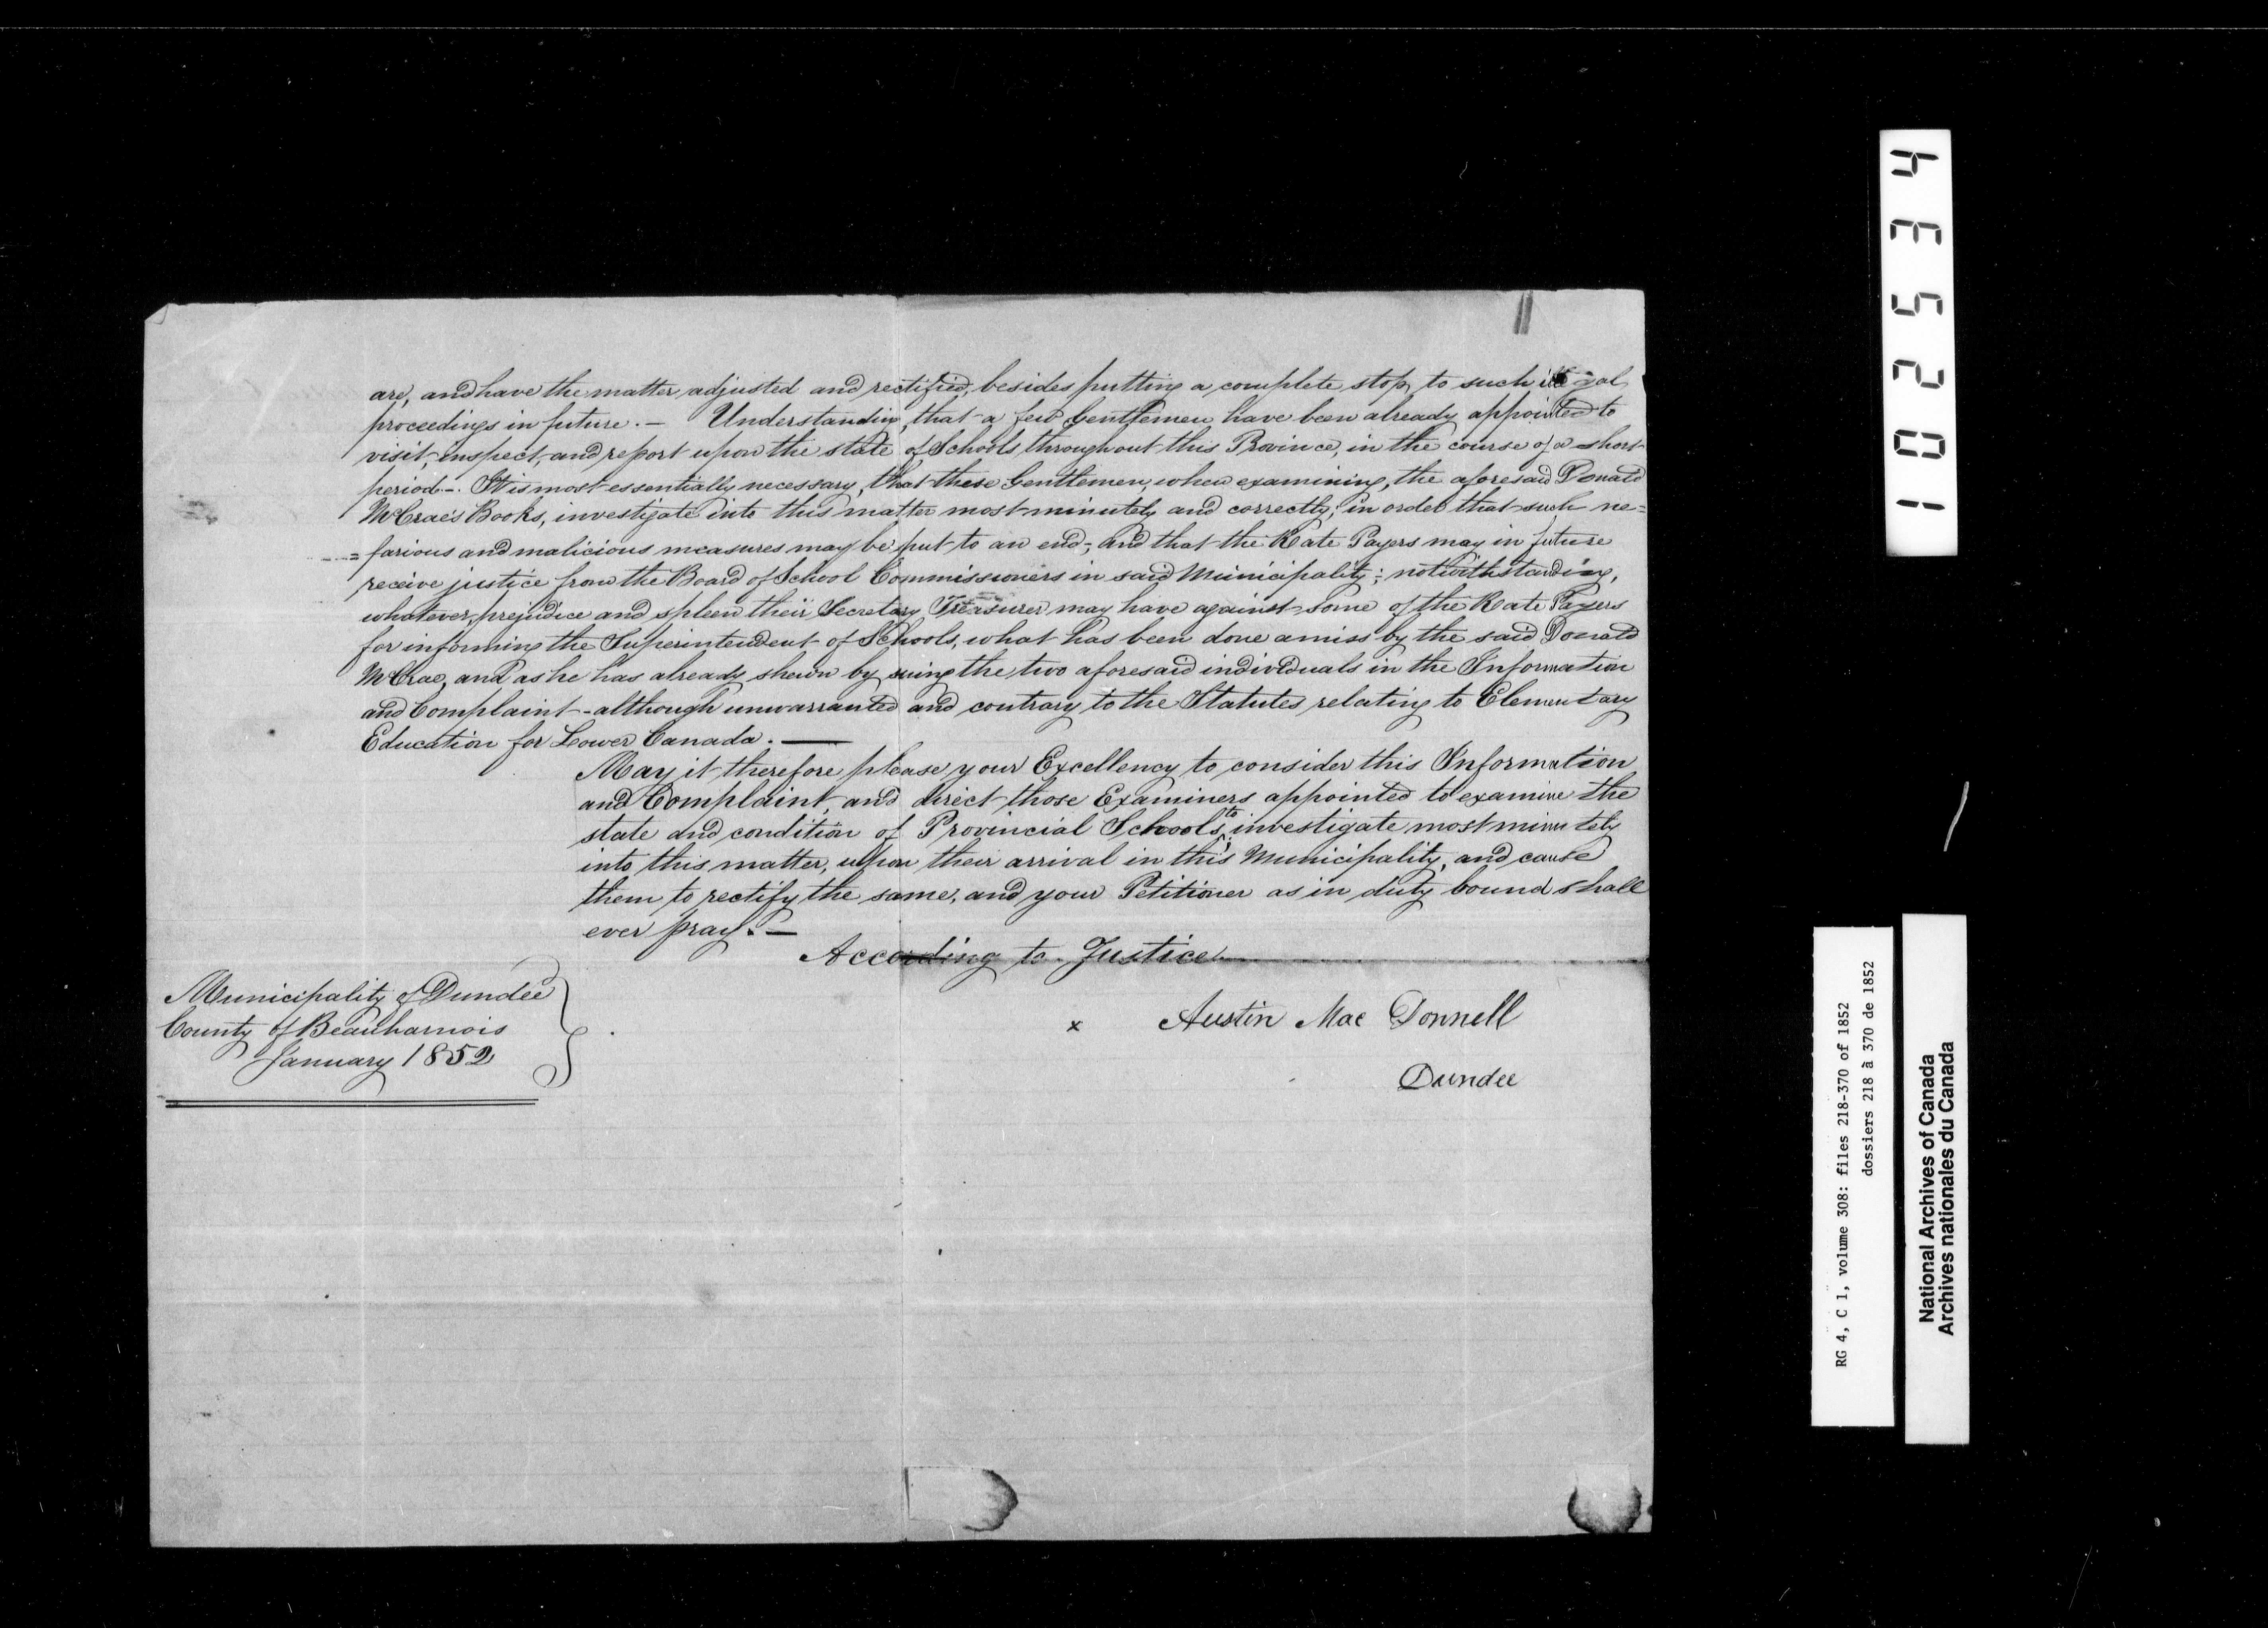 are, and have the matter adjusted and rectified, besides putting a complete stop, to such illegal
proceedings in future. — Understanding, that a few Gentlemen have been already appointed to
visit, inspect, and report upon the state of Schools throughout this Province, in the course of a short
period -. It is most essentially necessary, that these Gentlemen, when examining, the aforesaid Donald
McCrae's Books, investigate into this matter most minutely and correctly; in order that such ne=
=farious and malicious measures may be put to an end; and that the Rate Payers may in future
receive justice from the Board of School Commissioners in said Municipality; notwithstanding,
whatever, prejudice and spleen their Secretary Treasurer may have against some of the Rate Payers
for informing the Superintendent of Schools, what has been done amiss by the said Donald
McCrae, and as he has already shewn by suing the two aforesaid individuals in the Information
and Complaint - although unwarranted and contrary to the Statutes relating to Elementary
Education for Lower Canada. —
May it therefore please your Excellency to consider this Information
and Complaint, and direct those Examiners appointed to examine the
state and condition of Provincial Schools, to investigate most minutely
into this matter, upon their arrival in this Municipality, and cause
them to rectify the same, and your Petitioner as in duty bound shall
ever pray. —
According to Justice
Municipality of Dundee
County of Beauharnois
January 1852
x Austin Mac Donnell
Dundee
102534
RG 4, C 1, volume 308: files 218-370 of 1852
dossiers 218 à 370 de 1852
National Archives of Canada
Archives nationales du Canada